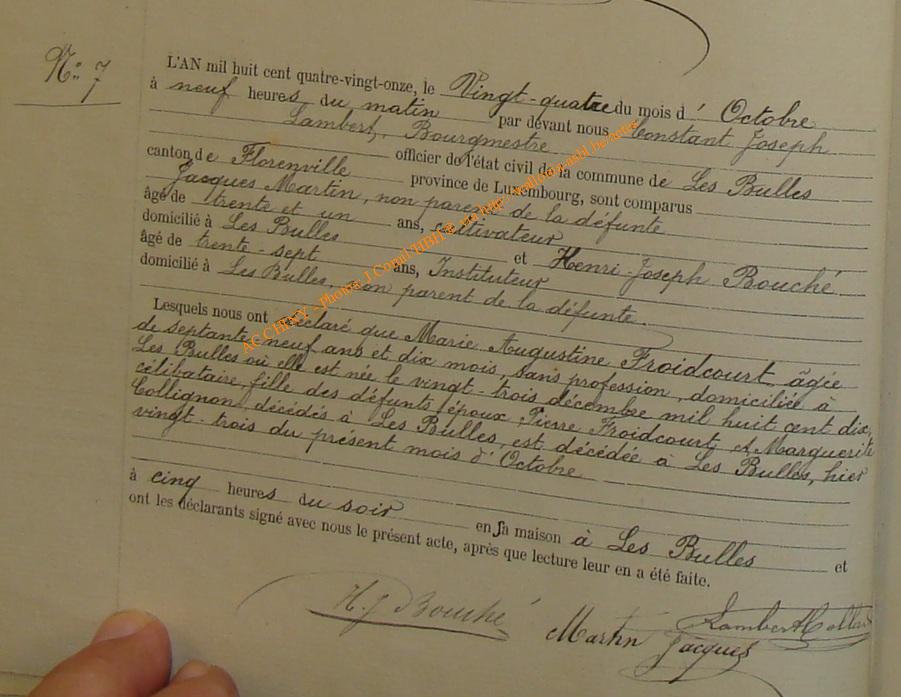 N° 7
L'AN mil huit cent quatre-vingt-onze, le Vingt-quatre du mois d' Octobre
à neuf heures du matin par devant nous Constant Joseph
Lambert, Bourgmestre officier de l'état civil de la commune de Les Bulles
canton de Florenville province de Luxembourg, sont comparus
Jacques Martin, non parent de la défunte
âgé de trente et un ans, cultivateur
domicilié à Les Bulles et Henri-Joseph Bouché
âgé de trente-sept ans, Instituteur
domicilié à Les Bulles, non parent de la défunte.
Lesquels nous ont déclaré que Marie Augustine Froidcourt, âgée
de septante neuf ans et dix mois, sans profession, domiciliée à
Les Bulles où elle est née le vingt-trois décembre mil huit cent dix,
célibataire, fille des défunts époux, Pierre Froidcourt et Marguerite
Collignon, décédés à Les Bulles, est décédée à Les Bulles, hier
vingt-trois du présent mois d'Octobre
à cinq heures du soir en sa maison à Les Bulles et
ont les déclarants signé avec nous le présent acte, après que lecture leur en a été faite.
H. J Bouché Martin Jacques Lambert
AC CHINY - Photos J Copul HBH